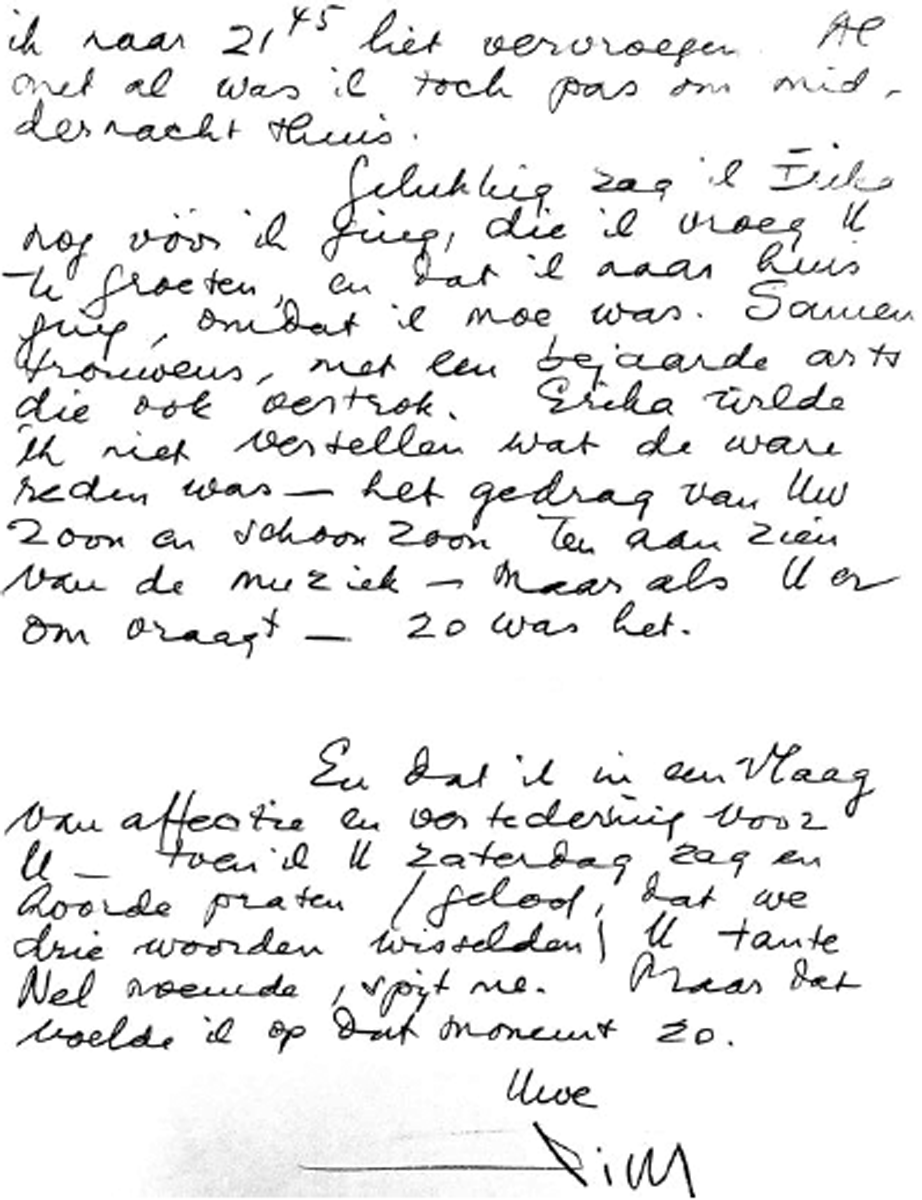 ik naar 21 45 liet vervroegen. Al
met al was ik toch pas om mid-
dernacht thuis.
Gelukkig zag ik Erika
nog vóór ik ging, die ik vroeg U
te groeten, en dat ik naar huis
ging, omdat ik moe was. Samen
trouwens, met een bejaarde arts
die ook vertrok. Erika wilde
ik niet vertellen wat de ware
reden was — het gedrag van Uw
zoon en schoonzoon ten aanzien
van de muziek — Maar als U er
om vraagt — zo was het.
En dat ik in een vlaag
van affectie en vertedering voor
U — toen ik U zaterdag zag en
hoorde praten (geloof, dat we
drie woorden wisselden) U tante
Nel noemde, spijt me. Maar dat
voelde ik op dat moment zo.
Uwe